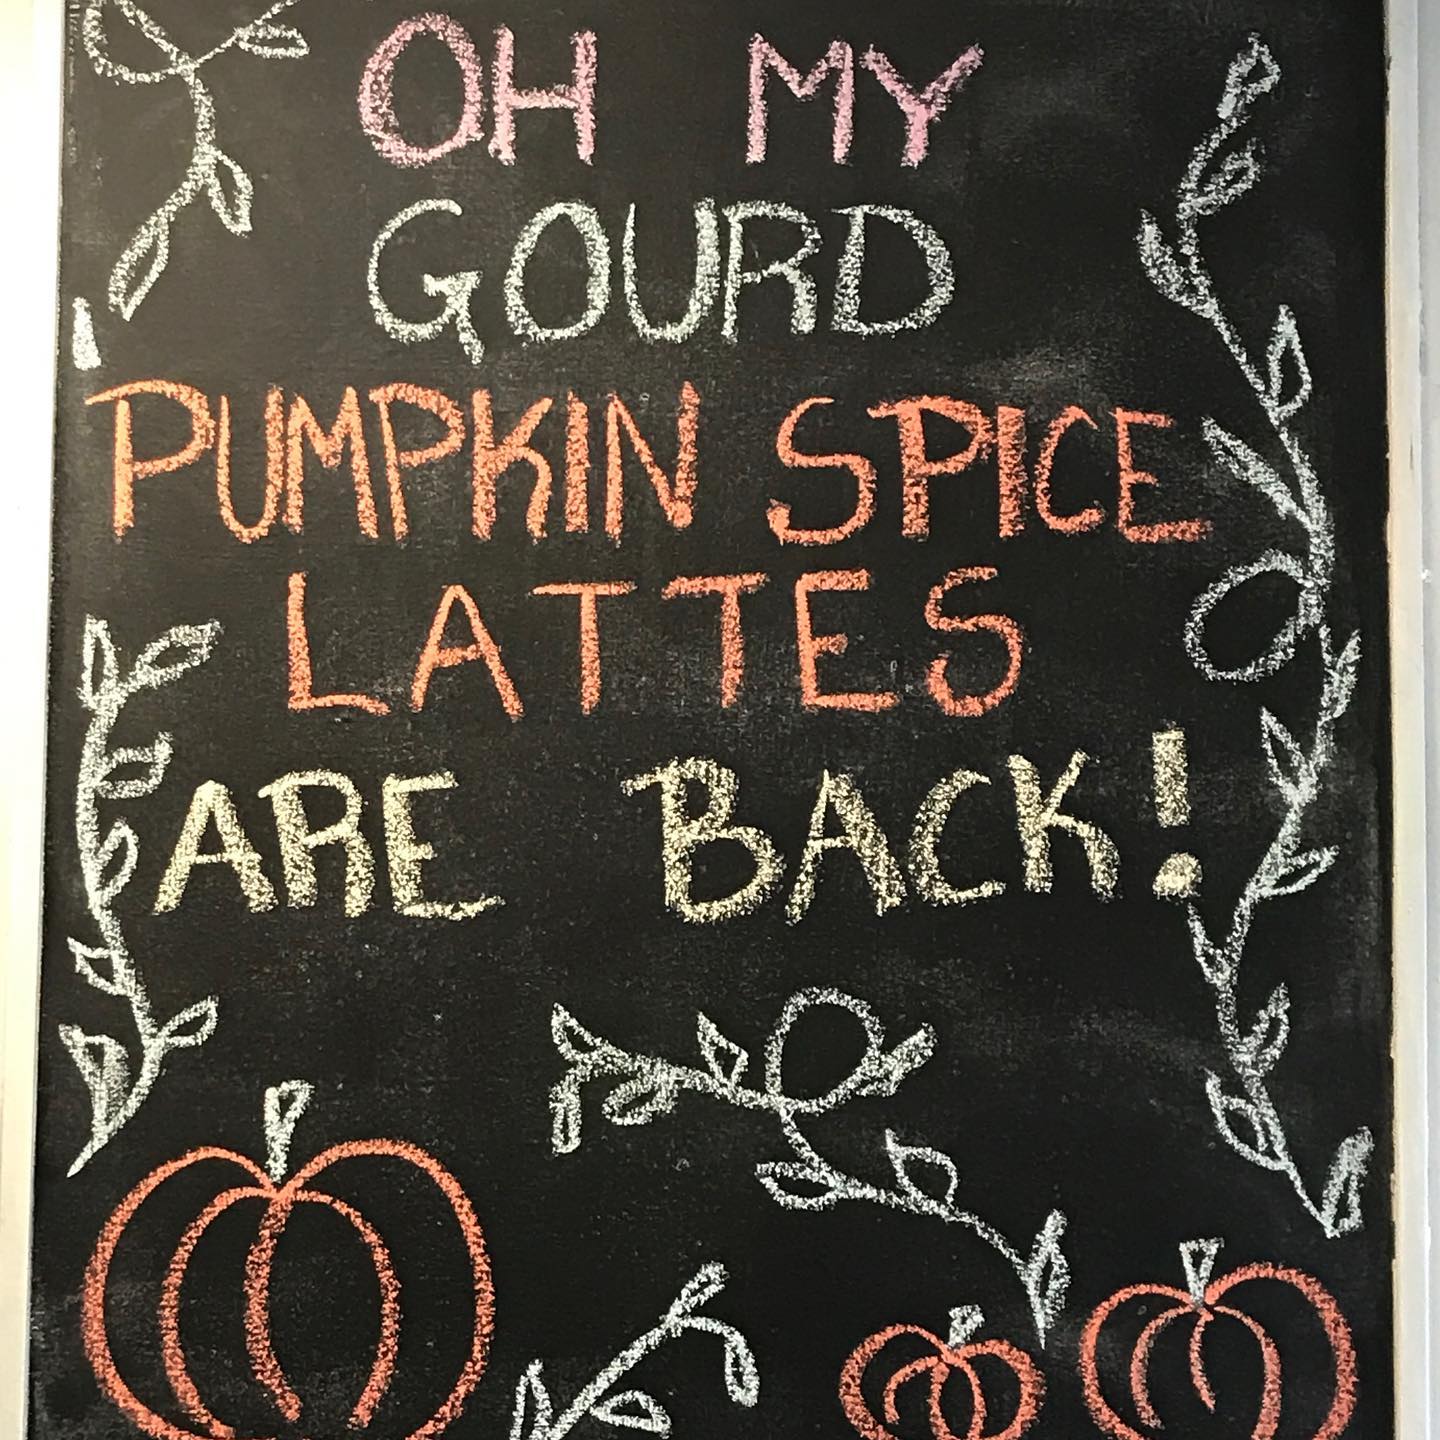 OH MY
GOURD
PUMPKIN SPICE
LATTES
ARE BACK!